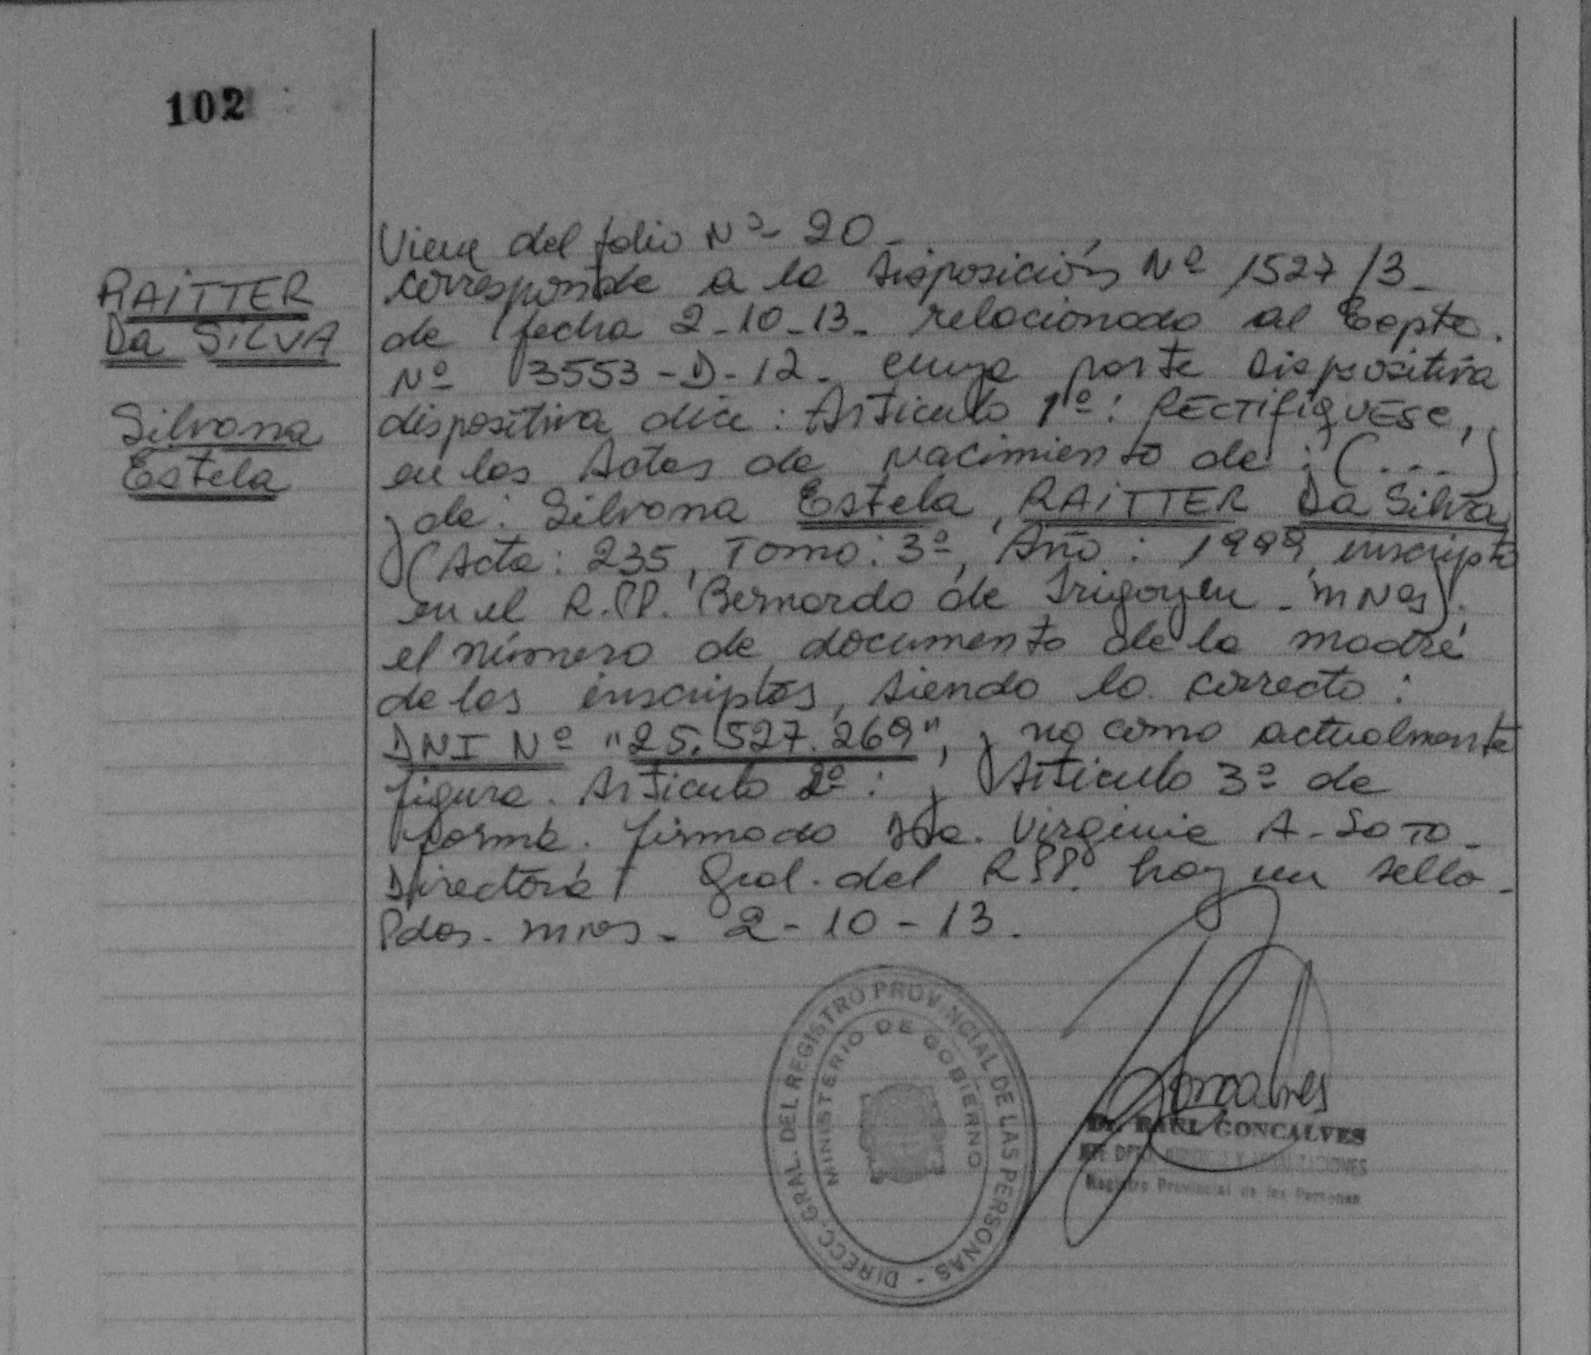 102
RAITTER
Da SILVA
Silvana
Estela
Viene del folio Nº 20-
corresponde a la Disposición Nº 1527/13-
de fecha 2-10-13- relacionado al Expte.
Nº 3553-D-12- cuya parte dispositiva
dispositiva dice: Articulo 1º: RECTIFIQUESE,
en las Actas de nacimiento de: (...)
y de: Silvana Estela, RAITTER Da Silva
(Acta: 235, Tomo: 3º, Año: 1999, inscripta
en el R.PP. Bernardo de Irigoyen - mnes).
el número de documento de la madre
de los inscriptos, siendo lo correcto:
DNI Nº "25.527.269", y no como actualmente
figura. Articulo 2º: y Articulo 3º de
forma. firmado Dra. Virginia A. Soto-
Directora Gral. del RPP. hay un sello-
Pdas. mnes- 2-10-13.
DIRECC. GRAL. DEL REGISTRO PROVINCIAL DE LAS PERSONAS -
MINISTERIO DE GOBIERNO
Goncalves
Dr. RAUL GONCALVES
Registro Provincial de las Personas